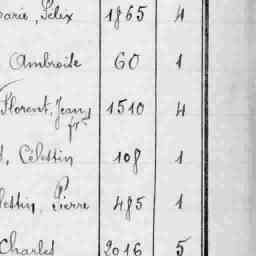 Marie, Félix 1865 4
Ambroise 60 1
Florent, Jean 1510 4
frs
Célestin 108 1
lestin, Pierre 485 1
Charles 2016 5